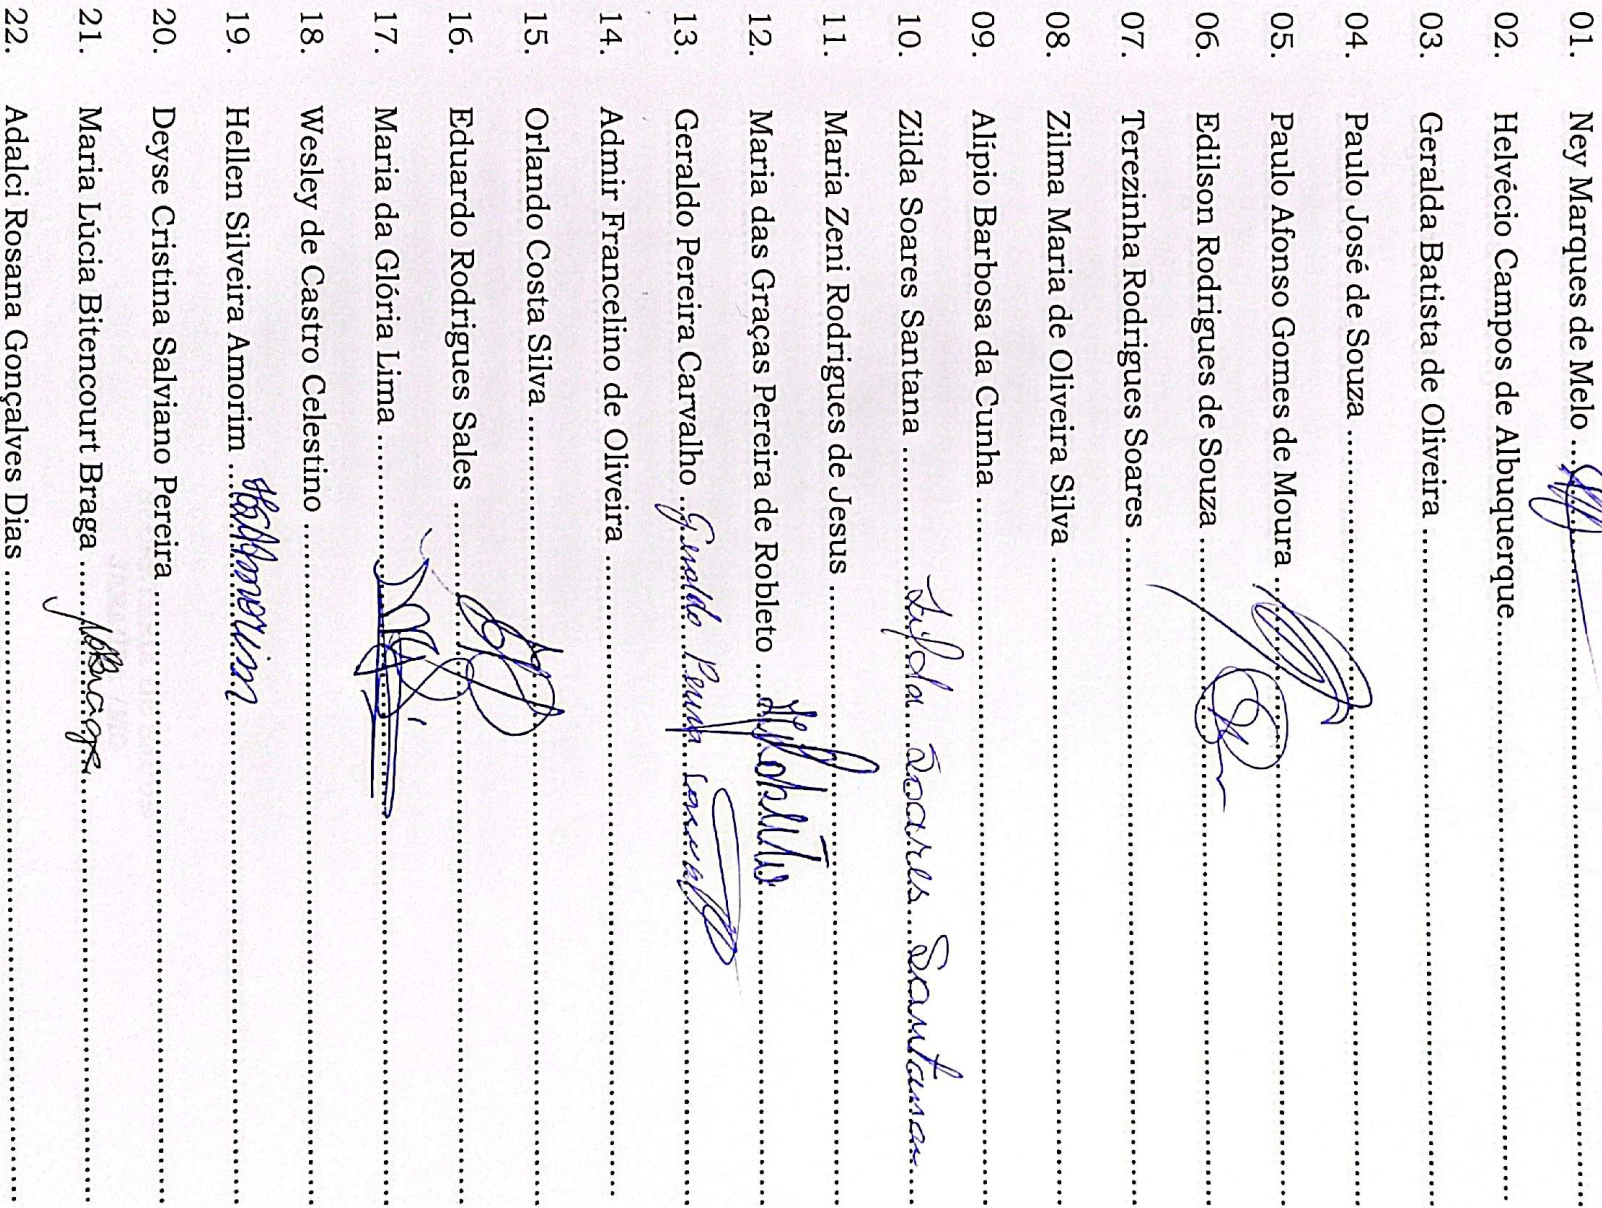 01. Ney Marques de Melo ........................
02. Helvécio Campos de Albuquerque ........................
03. Geralda Batista de Oliveira ........................
04. Paulo José de Souza ........................
05. Paulo Afonso Gomes de Moura ........................
06. Edilson Rodrigues de Souza ........................
07. Terezinha Rodrigues Soares ........................
08. Zilma Maria de Oliveira Silva ........................
09. Alípio Barbosa da Cunha ........................
10. Zilda Soares Santana ........ Zilda Soares Santana
11. Maria Zeni Rodrigues de Jesus ........................
12. Maria das Graças Pereira de Robleto ........................
13. Geraldo Pereira Carvalho . Geraldo Pereira Carvalho
14. Admir Francelino de Oliveira ........................
15. Orlando Costa Silva ........................
16. Eduardo Rodrigues Sales ........................
17. Maria da Glória Lima ........................
18. Wesley de Castro Celestino ........................
19. Hellen Silveira Amorim ........................
20. Deyse Cristina Salviano Pereira ........................
21. Maria Lúcia Bitencourt Braga ........................
22. Adalci Rosana Gonçalves Dias ........................